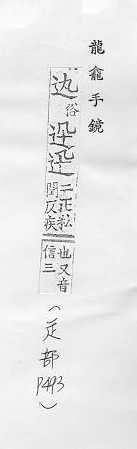 龍龕手鏡
俗
二正私
閏反疾
也又音
信三
(辵部
P493)